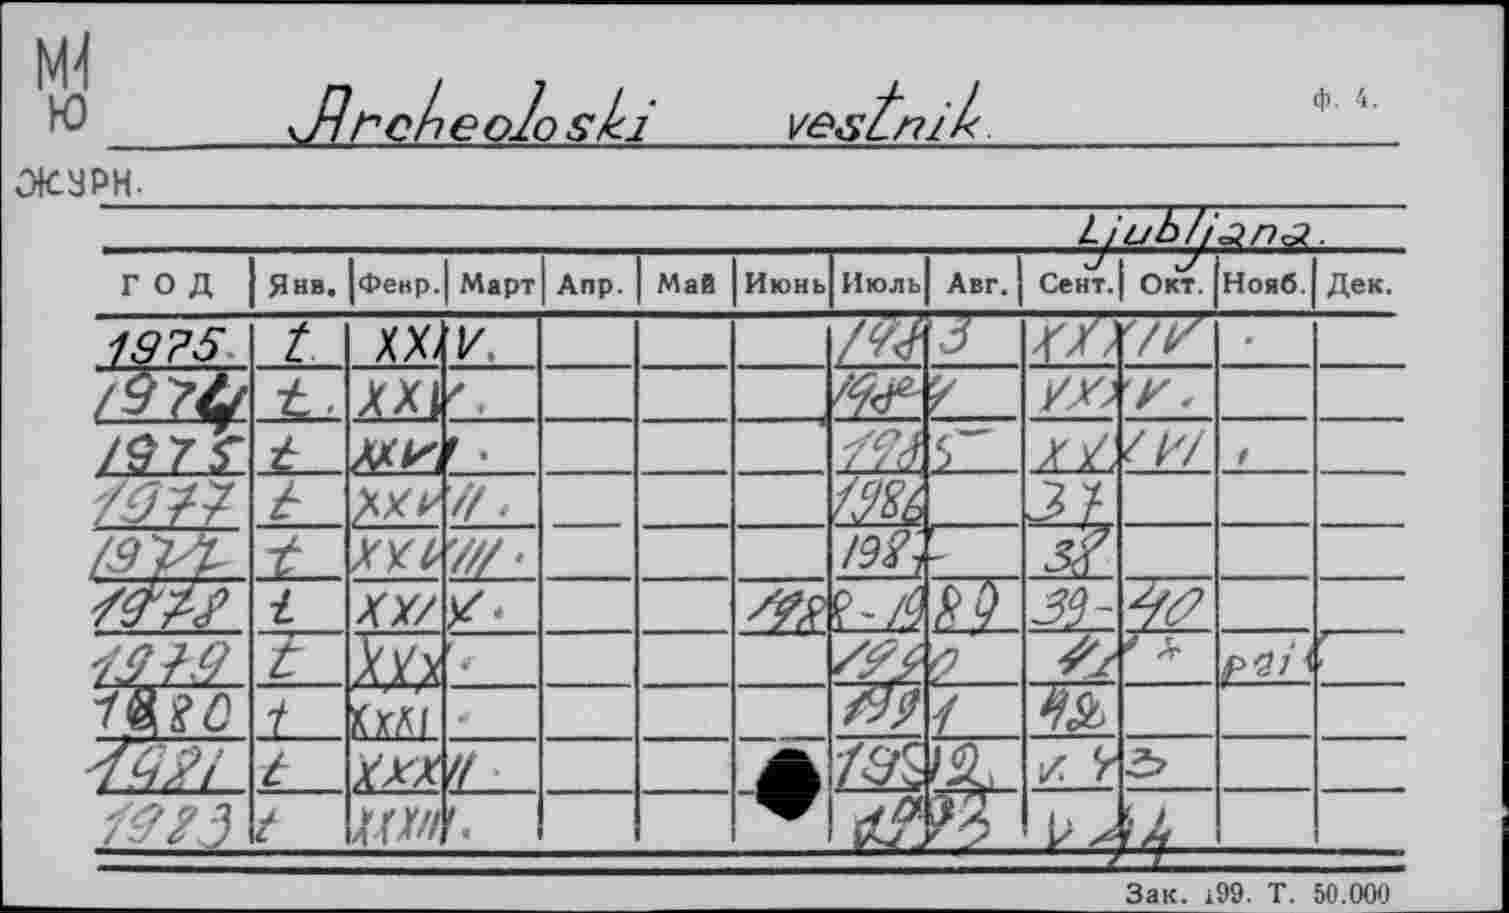 М1
Ю
Archeoloski vestnik.
ф. 4.
журн.
Ljubljana.
ГОД Янв. Февр. Март Апр. Май Июнь Июль Авг. Сент. Окт. Нояб. Дек.
1975 t. XXIV. 1983 XXXIV .
1974 t. XXV. 1984 XXXV.
1975 t XXVI . 1985 XXXVI .
1977 t XXVII . 1986 37
1977 t XXVIII . 1987 38
1978 t XXIX . 1988-1989 39-40
1979 t XXX . 1990 41
1980 t XXXI . 1991 42
1981 t XXXII . 1992 v. 43
1983 t XXXIII . 1993 v 44
Зак. 199. Т. 50.000